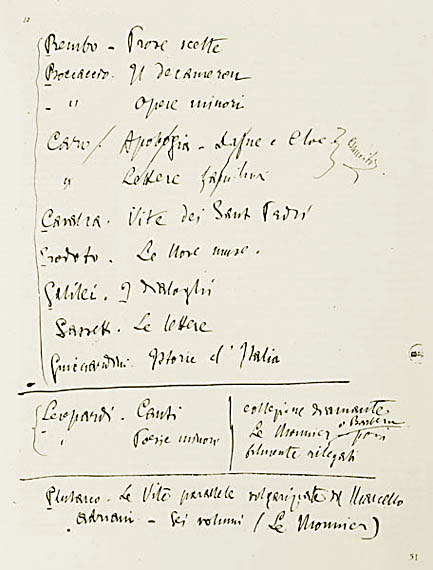 Bembo - Prose scelte
Boccaccio. Il decameron
- " Opere minori
Caro / Apologia - Dafne e Cloe
" Lettere familiari
Cavalca. Vite dei Santi Padri
Erodoto. Le Nove muse.
Galilei. I dialoghi
Le lettere
Guicciardini. Istorie d'Italia
Leopardi. Canti
" Poesie minori
collezione diamante
Le Monnier o Barbèra
filmente rilegati
Plutarco. Le Vite parallele volgarizzate da Marcello
Adriani - Sei volumi (Le Monnier)
51